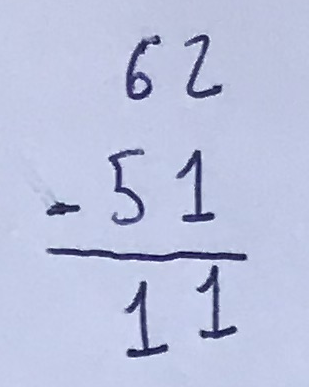 62
- 51
11